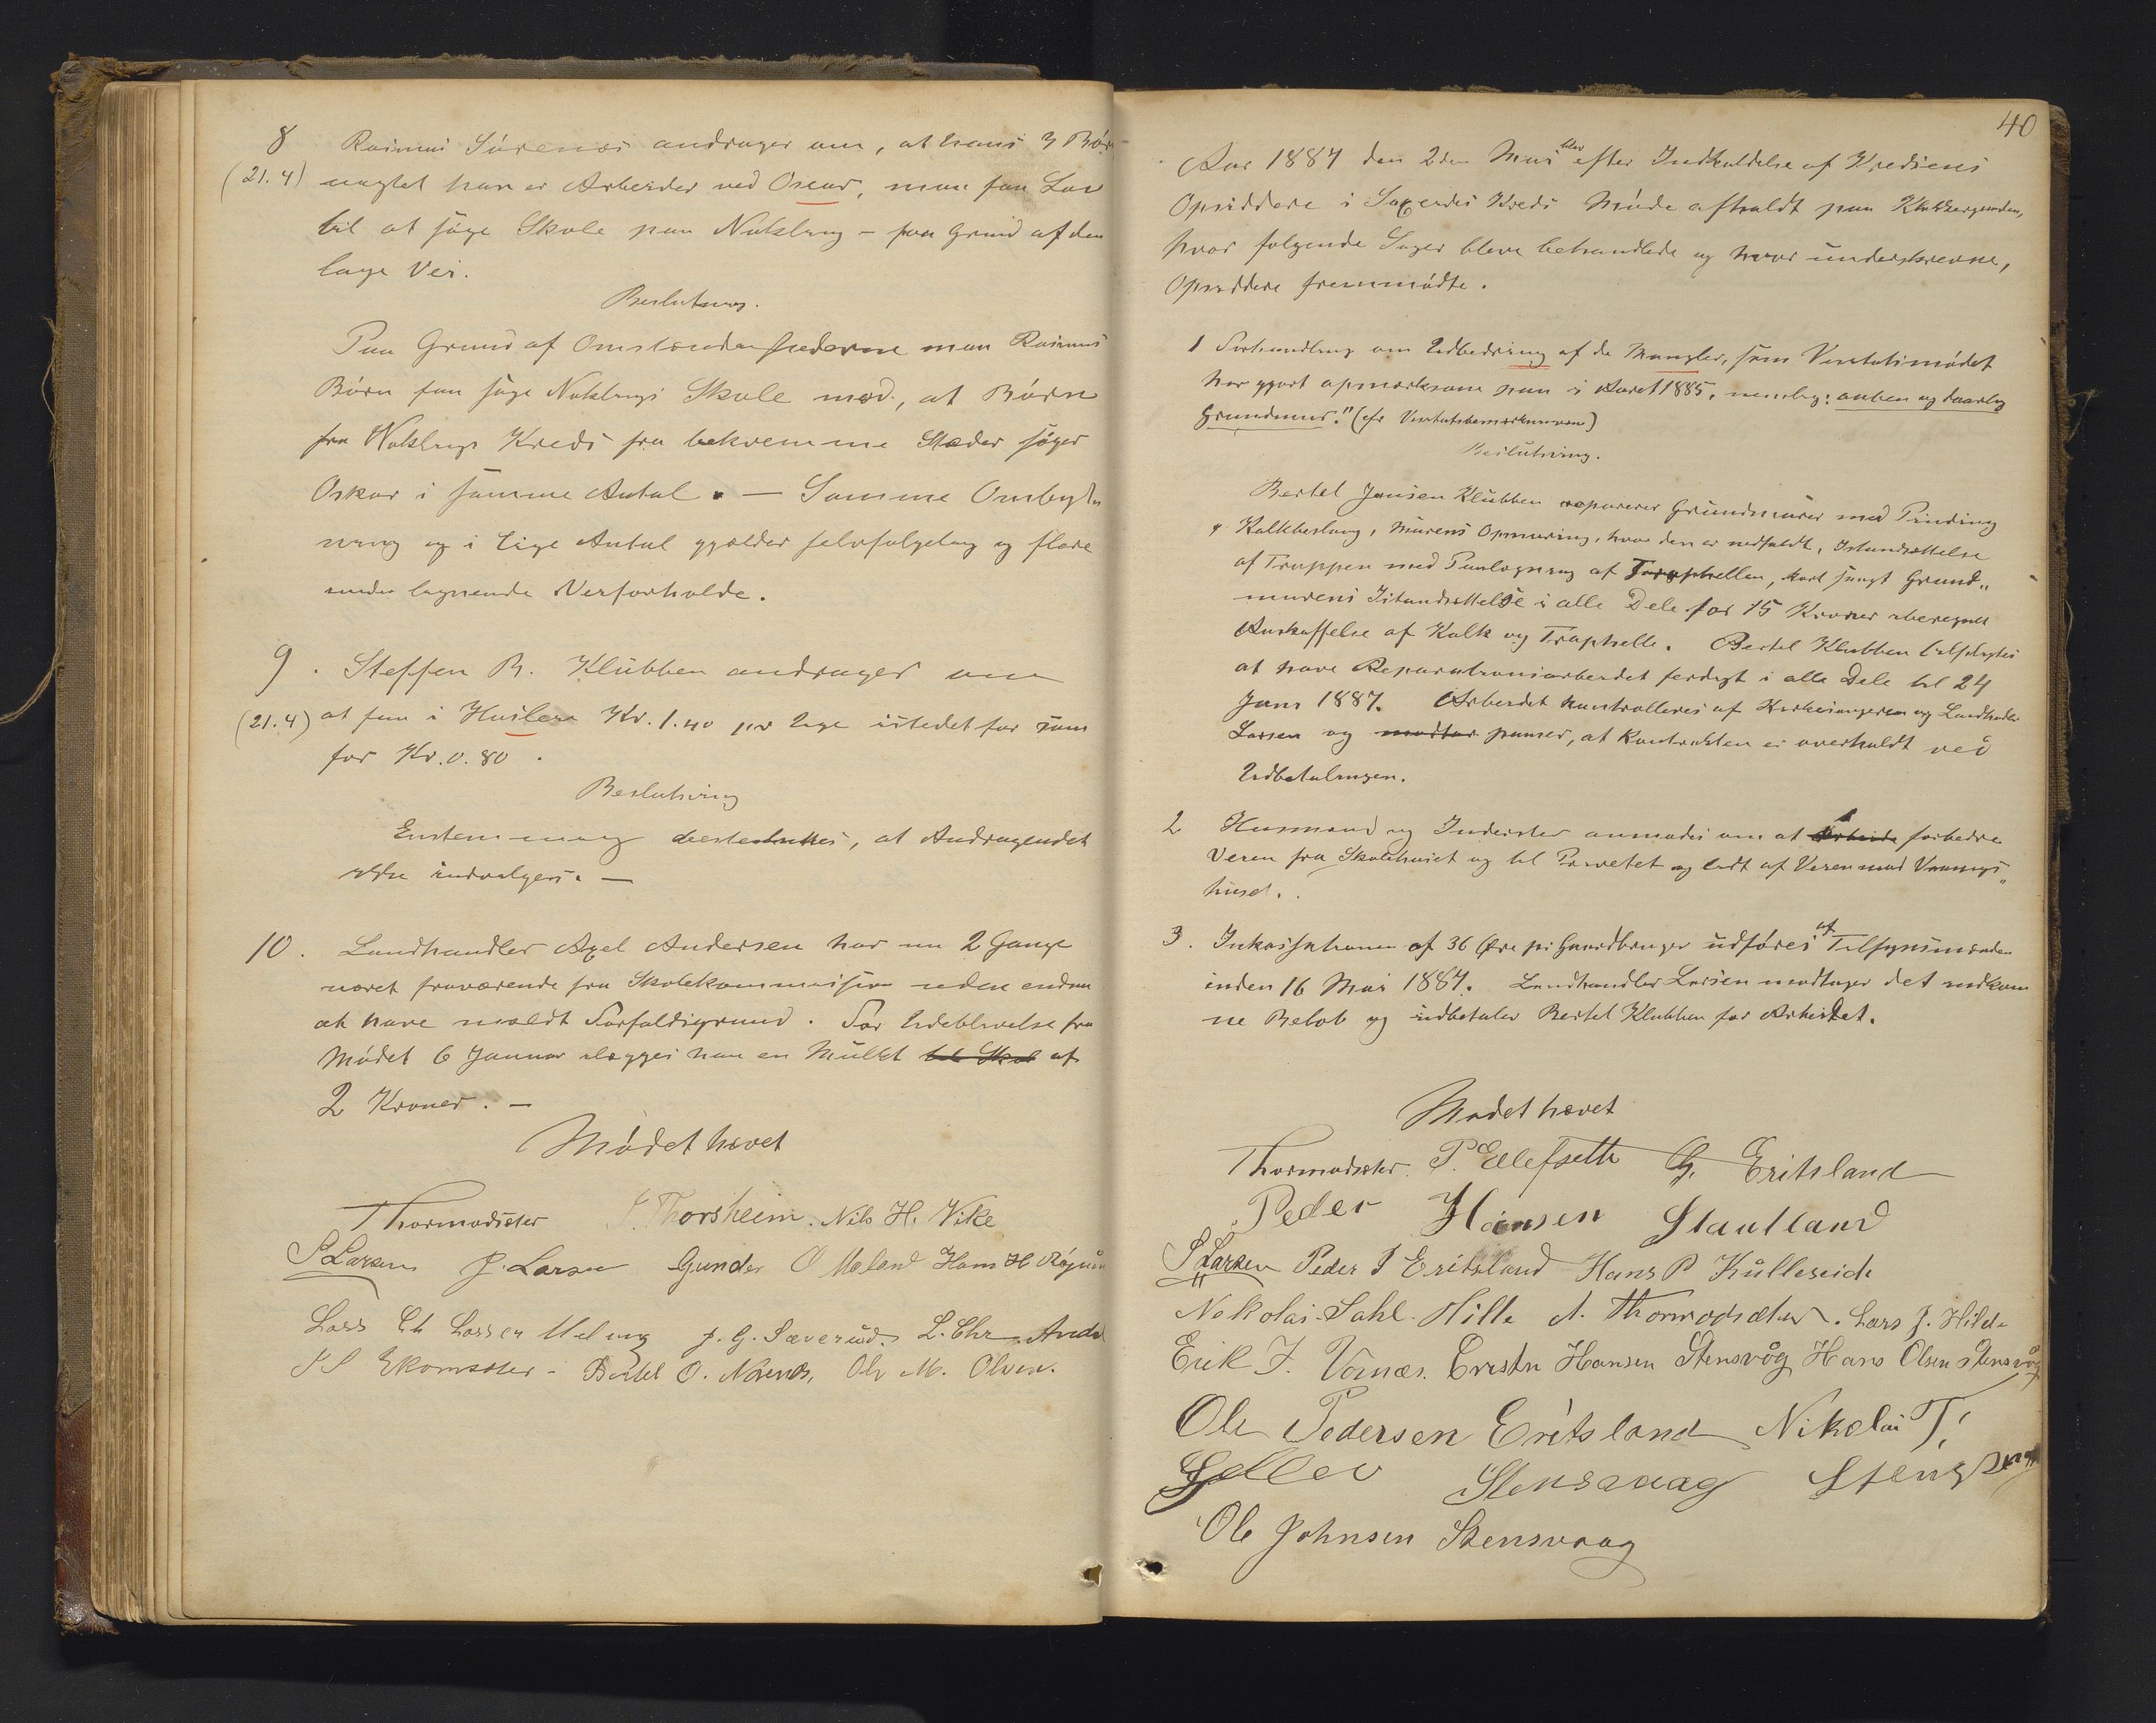 8 Rasmus Sörenes andrager om, at hans 3 Bör
(21.4) uagtet han er Arbeider ved Oscar, maa faa Lov
til at söge Skole paa Nøkling - paa Grund af den
lange Vei.
Beslutning.
Paa Grund af Omstændighederne maa Rasmus
Börn faa söge Nøklings Skole mod, at Börn
fra Nøklings Kreds fra bekvemme Stæder söger
Oskar i samme Antal. — Samme Ombyt
ning og i lige Antal gjælder selvfølgelig og flere
under lignende Veiforholde.
9. Steffen R. Klubben andrager om
(21.4) at faa i Husleie Kr. 1.40 pr Uge istedetfor som
før Kr. 0.80.
Beslutning
Enstemmig besluttes, at Andragendet
ikke indvilges. —
10. Landhandler Axel Andersen har nu 2 Gange
været fraværende fra Skolekommission uden endnu
at have meldt Forfaldsgrund. For Udeblivelse fra
Mödet 6 Januar ilægges han en Mulkt til Skol af
2 Kroner. —
Mödet hævet
Thormodsæter J. Thorsheim. Nils H. Vike
S Larsen J. Larsen Gunder O Mæland Hans H Røgnu
Lars Ch Larsen Meling J. G. Sæverud. L. Chr. Ande
Ekornsæter - Bertel O. Nørenes, Ole M. Olsen.
40
Aar 1887 den 2den Mai blev efter Indkaldelse af Kredsens
Opsiddere i Kreds Möde afholdt paa Klokkergaarden,
hvor følgende Sager bleve behandlede og hvor underskrevne,
Opsiddere fremmödte.
1 Forhandling om Udbedring af de Mangler, som Visitatsmödet
har gjort opmærksom paa i Aaret 1885, nemlig: aaben og daarlig
Grundmur." (cfr Visitatsbemærkningen)
Beslutning.
Bertel Jansen Klubben reparerer Grundmuren med Pinding
& Kalkbeslaaing, Murens Opmuring, hvor den er nedfaldt, Istandsættelse
af Trappen med Paalægning af Traphellen, kort sagt Grund„
murens Istandsættelse i alle Dele for 15 Kroner iberegnet
Anskaffelse af Kalk og Traphelle. Bertel Klubben tilpligtes
at have Reparationsarbeidet færdigt i alle Dele til 24
Juni 1887. Arbeidet kontrolleres af Kirkesangeren og Landhandler
Larsen og modtar passer, at Kontrakten er overholdt ved
Udbetalingen.
2 Husmænd og Inderster anmodes om at arbeide forbedre
Veien fra Skolehuset og til Privetet og lidt af Veien mod Vaanings„
huset.
3. Inkassationen af 36 Øre pr Gaardbruger udföres af Tilsynsmanden
inden 16 Mai 1887. Landhandler Larsen modtager det indkom
ne Belöb og udbetaler Bertel Klubben for Arbeidet.
Mödet hævet
Thormodsæter. P. Ellefseth G. Eritsland
Peder Hansen Slautland
S Larsen Peder J Eritsland Hans P Kulleseid
Nekolai Sahl Hille A. Thormodsæter. Lars J. Hilde
Erik J. Vornæs. Cristen Hansen Stensvåg Hans Olsen Stensvåg
Ole Pedersen Eritsland Nikolai T.
Stensvaag
Ole Johnsen Stensvaag